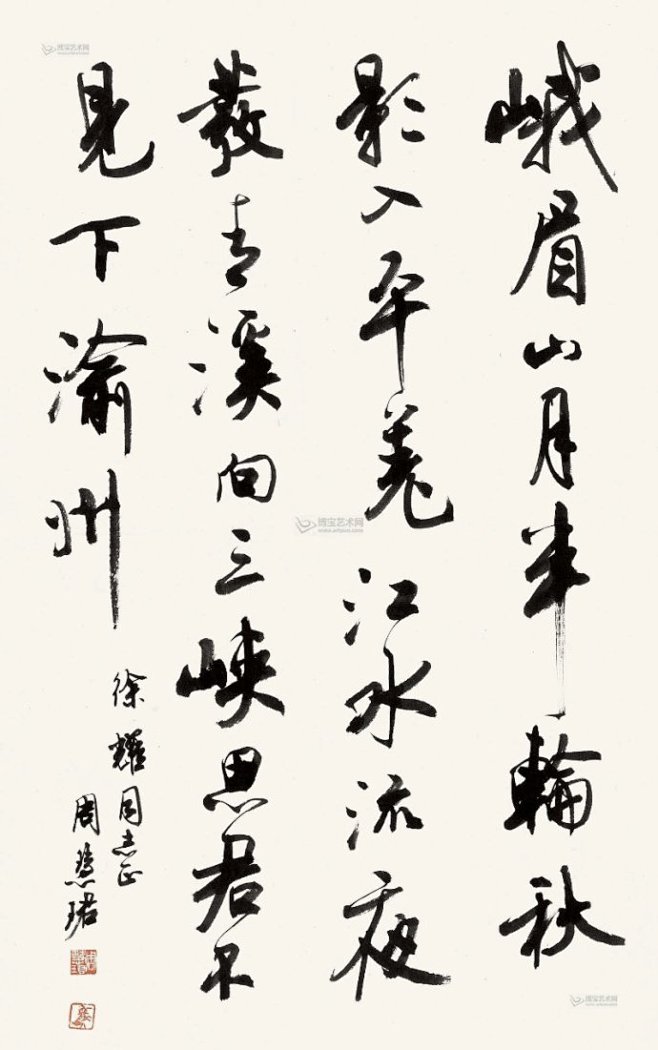 峨眉山月半輪秋
影入平羌江水流夜
發青溪向三峡思君不
見下渝州
徐耀同志正
周慧珺
博宝艺术网
博宝艺术网
博宝艺术网